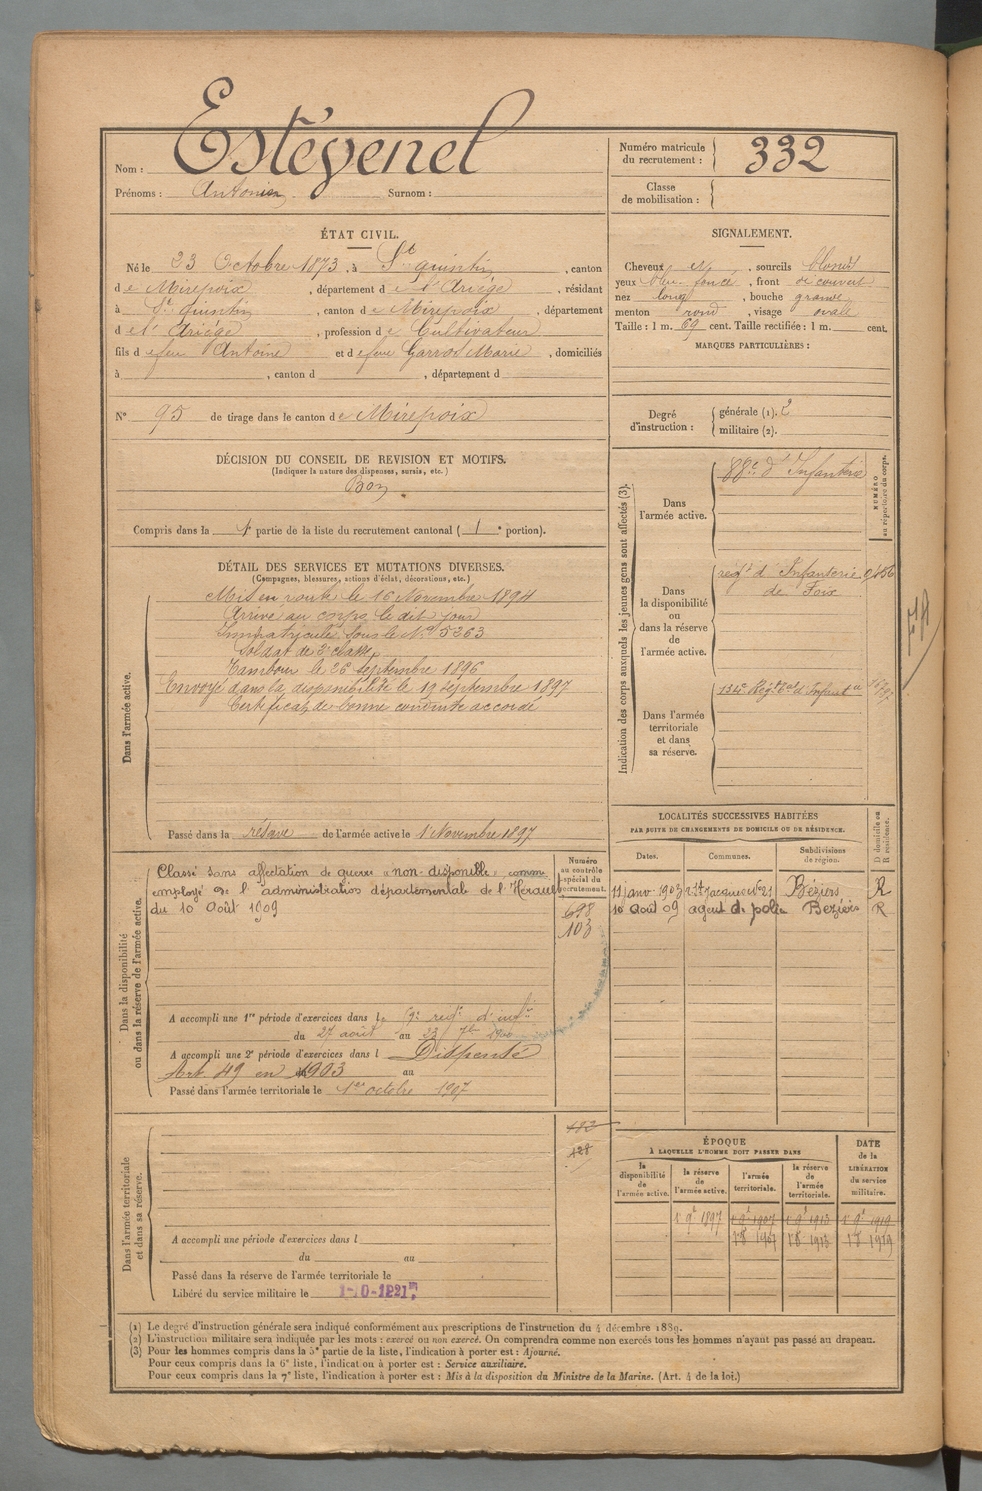 Nom : Estévenel
Prénoms : Antonin Surnom :
Numéro matricule du recrutement : 332
Classe de mobilisation :
ÉTAT CIVIL.
Né le 23 Octobre 1873, à St quintin, canton
de Mirepoix, département de l'Ariège, résidant
à St quintin, canton de Mirepoix, département
de l'Ariège, profession de Cultivateur
fils de feu Antoine et de feue Garros Marie, domiciliés
à , canton d , département d
N° 95 de tirage dans le canton de Mirepoix
SIGNALEMENT.
Cheveux et, sourcils blonds
yeux bleu foncé, front découvert
nez long, bouche grande
menton rond, visage ovale
Taille : 1 m. 69 cent. Taille rectifiée : 1 m. cent.
MARQUES PARTICULIÈRES :
Degré d'instruction : générale (1). 2
militaire (2).
DÉCISION DU CONSEIL DE REVISION ET MOTIFS.
(Indiquer la nature des dispenses, sursis, etc.)
Bon
Compris dans la 1e partie de la liste du recrutement cantonal ( 1 e portion).
DÉTAIL DES SERVICES ET MUTATIONS DIVERSES.
(Campagnes, blessures, actions d'éclat, décorations, etc.)
Dans l'armée active.
Mis en route le 16 Novembre 1894
Arrivé au corps le dit jour
Immatriculé sous le No 5363
Soldat de 2e classe
Tambour le 26 septembre 1896
Envoyé dans la disponibilité le 19 septembre 1897
Certificat de bonne conduite accordé
Passé dans la réserve de l'armée active le 1er Novembre 1897
Indication des corps auxquels les jeunes gens sont affectés (3).
NUMÉRO au répertoire du corps.
Dans l'armée active.
88e d'Infanterie
Dans la disponibilité ou dans la réserve de l'armée active.
regt d'Infanterie
de Foix
Dans l'armée territoriale et dans sa réserve.
134e Régt tal d'Infanterie
Dans la disponibilité ou dans la réserve de l'armée active.
Numéro au contrôle spécial du recrutement.
Classé sans affectation de guerre "non disponible" comme
employé de l'administration départementale de l'Hérault
du 10 Août 1909
698
103
A accompli une 1re période d'exercices dans le 59e regt d'infie
du 27 août au 23 7bre 1900
A accompli une 2e période d'exercices dans l Dispensé
Art. 49 en 1903 au
Passé dans l'armée territoriale le 1er octobre 1907
LOCALITÉS SUCCESSIVES HABITÉES
PAR SUITE DE CHANGEMENTS DE DOMICILE OU DE RÉSIDENCE.
Dates. Communes. Subdivisions de région. D domicile ou R résidence.
11 janv 1903 r. St Jacques No 21 Béziers R
10 août 09 agent de police Beziers R
Dans l'armée territoriale et dans sa réserve.
112
128
A accompli une période d'exercices dans l
du au
Passé dans la réserve de l'armée territoriale le
Libéré du service militaire le
ÉPOQUE
À LAQUELLE L'HOMME DOIT PASSER DANS
DATE de la LIBÉRATION du service militaire.
la disponibilité de l'armée active. la réserve de l'armée active. l'armée territoriale. la réserve de l'armée territoriale.
1 9e 1897 1 9e 1907 1 9e 1913 1 9e 1919
1 8 1907 1 8 1913 1 8 1919
(1) Le degré d'instruction générale sera indiqué conformément aux prescriptions de l'instruction du 4 décembre 1889.
(2) L'instruction militaire sera indiquée par les mots : exercé ou non exercé. On comprendra comme non exercés tous les hommes n'ayant pas passé au drapeau.
(3) Pour les hommes compris dans la 5e partie de la liste, l'indication à porter est : Ajourné.
Pour ceux compris dans la 6e liste, l'indication à porter est : Service auxiliaire.
Pour ceux compris dans la 7e liste, l'indication à porter est : Mis à la disposition du Ministre de la Marine. (Art. 4 de la loi.)